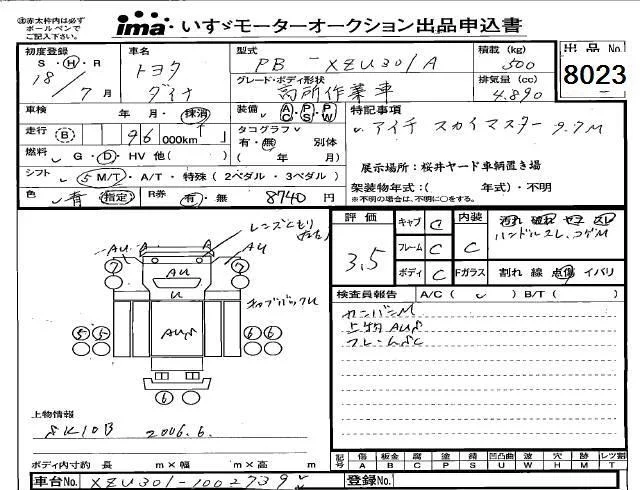 ㊟赤太枠内は必ず
ボールペンで
ご記入下さい。
ima いすゞモーターオークション出品申込書
初度登録
S・H・R
18/7月
車名
トヨタ
ダイナ
型式
PB-XZU301A
積載 (kg)
500
出品 No
8023
グレード・ボディ形状
高所作業車
排気量 (cc)
4.890
車検
年 月・抹消
装備
AC PS PW
特記事項
アイチ スカイマスター 9.7M
走行
B 96 000km
タコグラフ
有・無 別体
( 年 月)
燃料
G・D・HV 他( )
展示場所：桜井ヤード車輌置き場
シフト
5 M/T・A/T・特殊 (2ペダル・3ペダル)
架装物年式：( 年式)・不明
※不明の場合は、不明に○をする。
色
青 指定
R券
有・無 8740円
レンズくもり
AU A A AU
7 7
AU
U
キャブバックU
5 5 AUS 6 6
6
評価
3.5
キャブ C
フレーム C
ボディ C
内装
C
Fガラス
汚れ 破れ セコ スレ
ハンドルスレ、コゲM
割れ 線 点傷 イバリ
検査員報告
A/C ( ) B/T ( )
カンバンM
上物AUS
フレームSC
上物情報
SK10B 2006.6.
ボディ内寸 約 長 m×幅 m×高 m
記号
傷 板金 腐 塗 錆 凹凸曲 波 穴 跡 レツ割
A B C P S U W H M T
車台No.
XZU301-1002739
登録No.